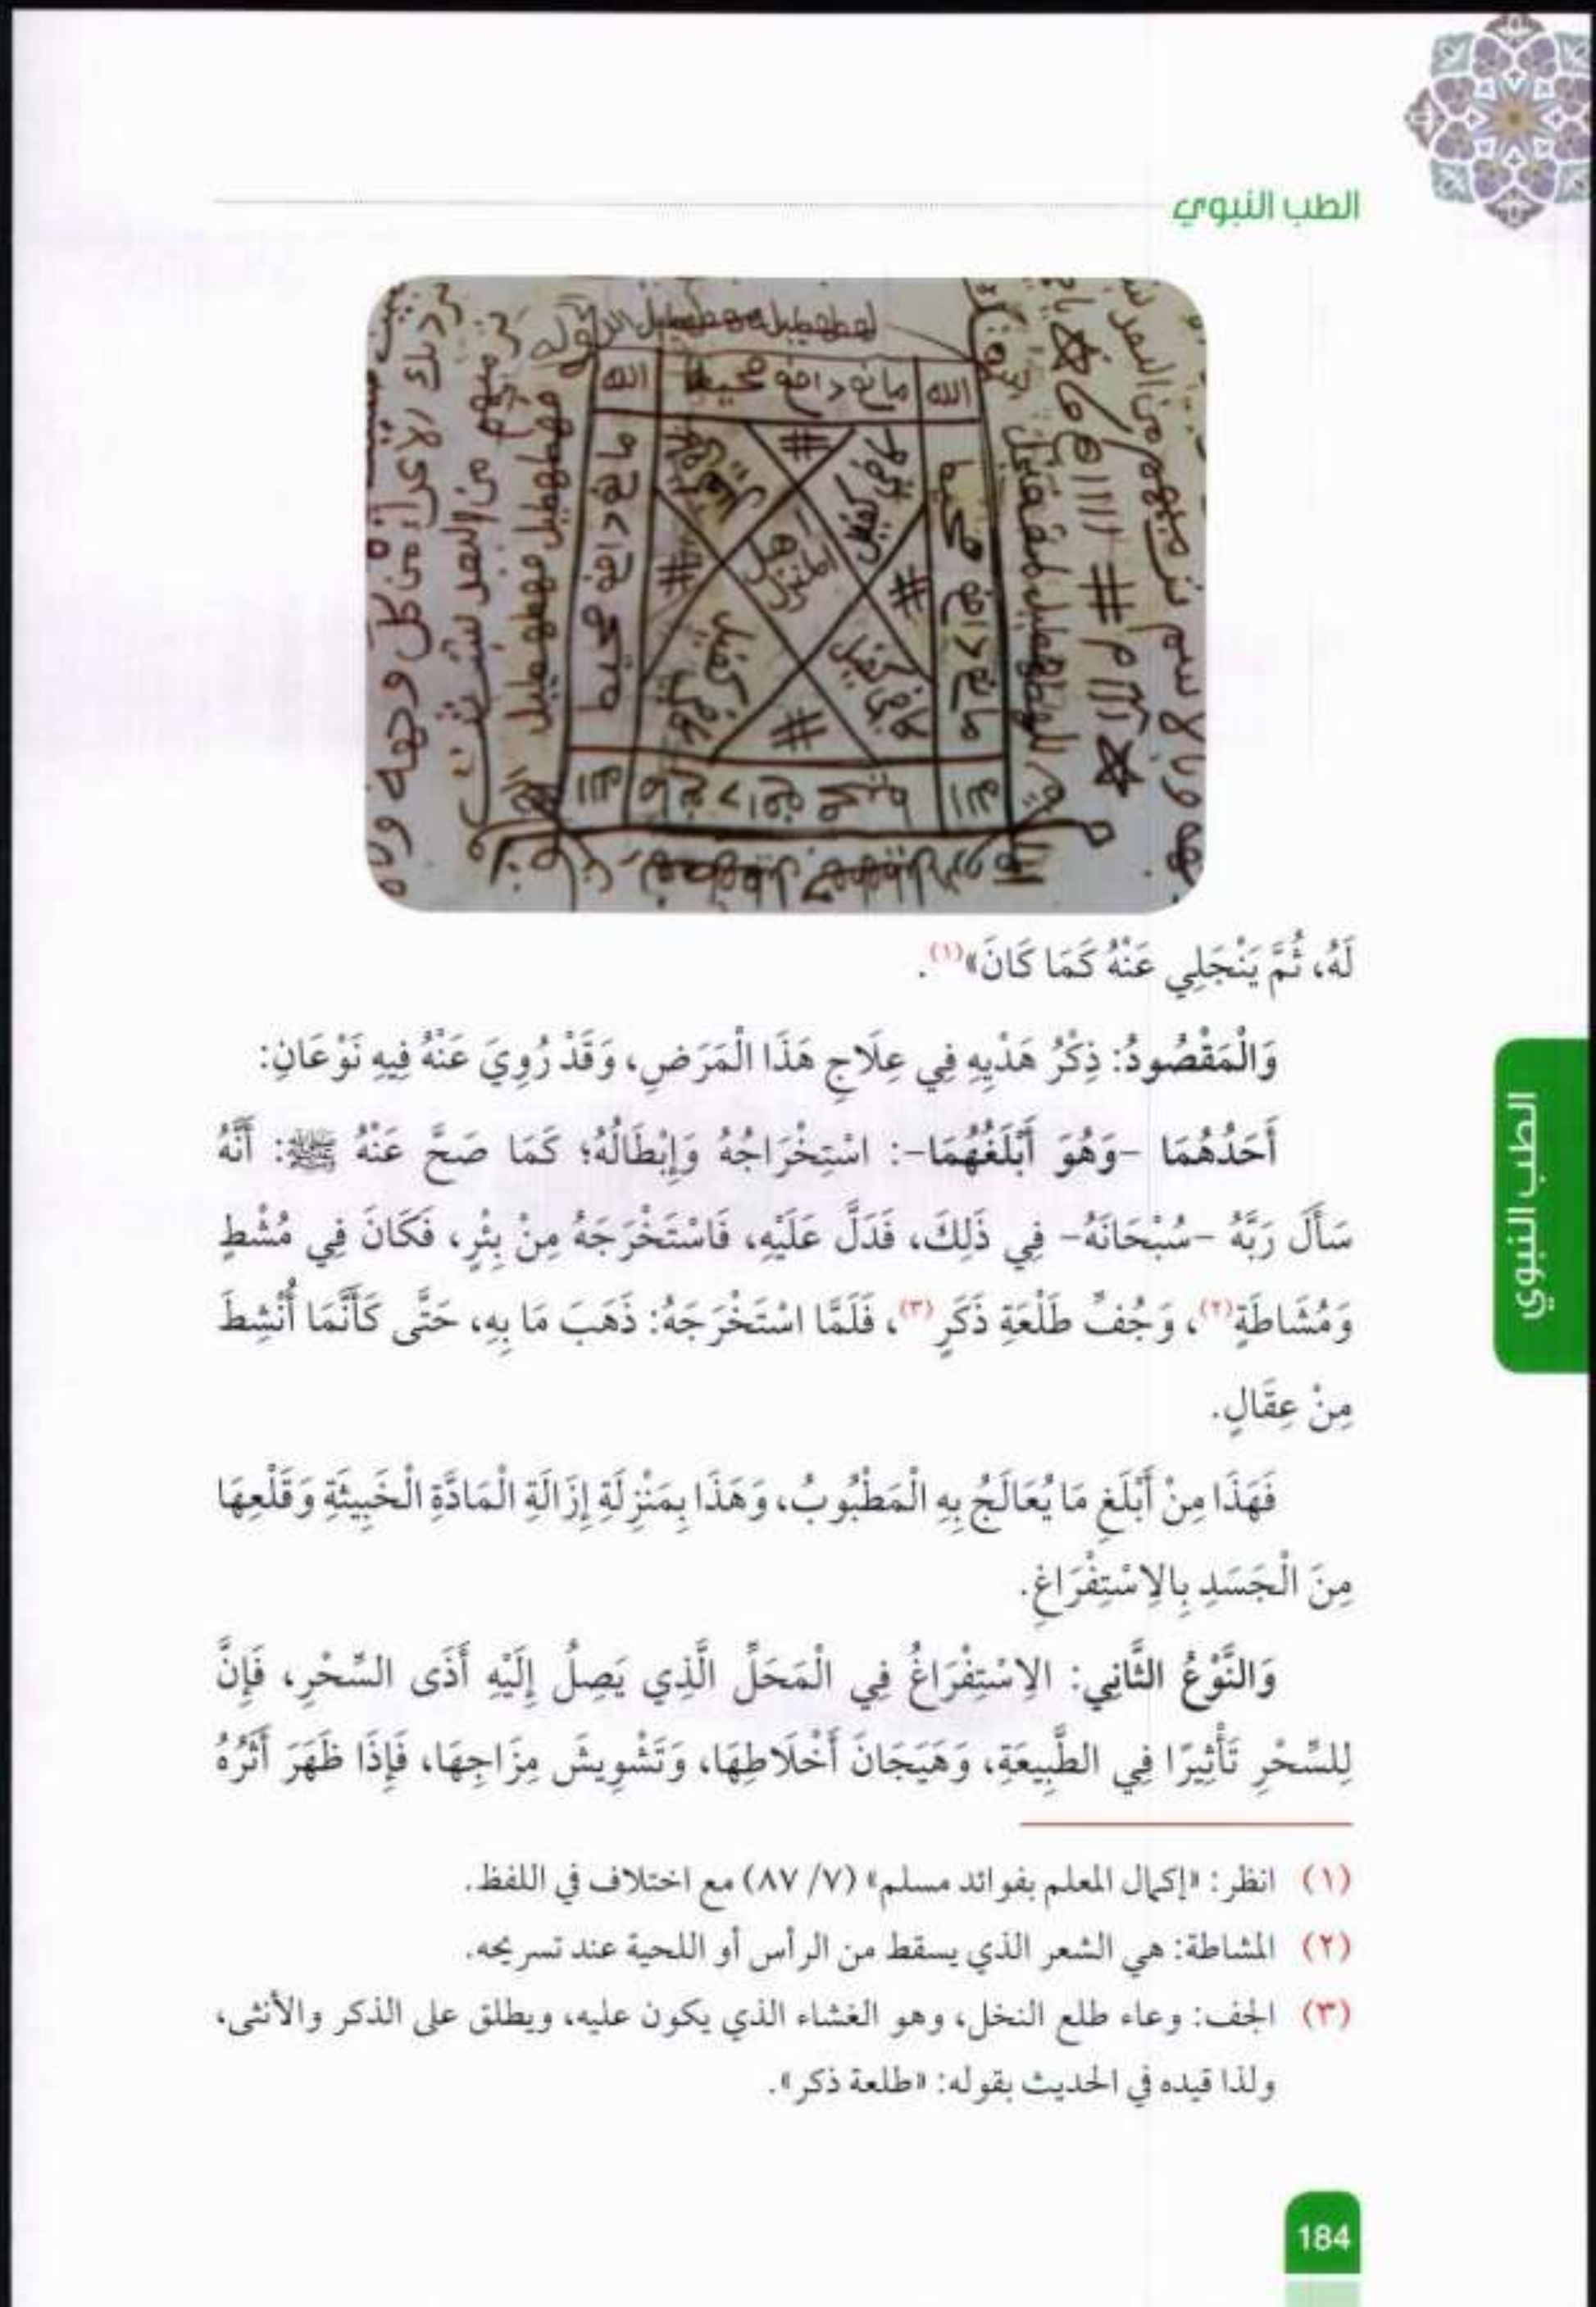 الطب النبوي
الله مانع دافع محيط الله
مانع دافع محيط
مانع دافع محيط
الله مانع دافع محيط الله
لَهُ، ثُمَّ يَنْجَلِي عَنْهُ كَمَا كَانَ»(١).
وَالْمَقْصُودُ: ذِكْرُ هَدْيِهِ فِي عِلَاجِ هَذَا الْمَرَضِ، وَقَدْ رُوِيَ عَنْهُ فِيهِ نَوْعَانِ:
أَحَدُهُمَا -وَهُوَ أَبْلَغُهُمَا-: اسْتِخْرَاجُهُ وَإِبْطَالُهُ؛ كَمَا صَحَّ عَنْهُ ﷺ: أَنَّهُ
سَأَلَ رَبَّهُ -سُبْحَانَهُ- فِي ذَلِكَ، فَدَلَّ عَلَيْهِ، فَاسْتَخْرَجَهُ مِنْ بِئْرٍ، فَكَانَ فِي مُشْطٍ
وَمُشَاطَةٍ(٢)، وَجُفِّ طَلْعَةِ ذَكَرٍ(٣)، فَلَمَّا اسْتَخْرَجَهُ: ذَهَبَ مَا بِهِ، حَتَّى كَأَنَّمَا أُنْشِطَ
مِنْ عِقَالٍ.
فَهَذَا مِنْ أَبْلَغِ مَا يُعَالَجُ بِهِ الْمَطْبُوبُ، وَهَذَا بِمَنْزِلَةِ إِزَالَةِ الْمَادَّةِ الْخَبِيثَةِ وَقَلْعِهَا
مِنَ الْجَسَدِ بِالِاسْتِفْرَاغِ.
وَالنَّوْعُ الثَّانِي: الِاسْتِفْرَاغُ فِي الْمَحَلِّ الَّذِي يَصِلُ إِلَيْهِ أَذَى السِّحْرِ، فَإِنَّ
لِلسِّحْرِ تَأْثِيرًا فِي الطَّبِيعَةِ، وَهَيَجَانَ أَخْلَاطِهَا، وَتَشْوِيشَ مِزَاجِهَا، فَإِذَا ظَهَرَ أَثَرُهُ
(١) انظر: «إكمال المعلم بفوائد مسلم» (٧/ ٨٧) مع اختلاف في اللفظ.
(٢) المشاطة: هي الشعر الذي يسقط من الرأس أو اللحية عند تسريحه.
(٣) الجف: وعاء طلع النخل، وهو الغشاء الذي يكون عليه، ويطلق على الذكر والأنثى،
ولذا قيده في الحديث بقوله: «طلعة ذكر».
الطب النبوي
184